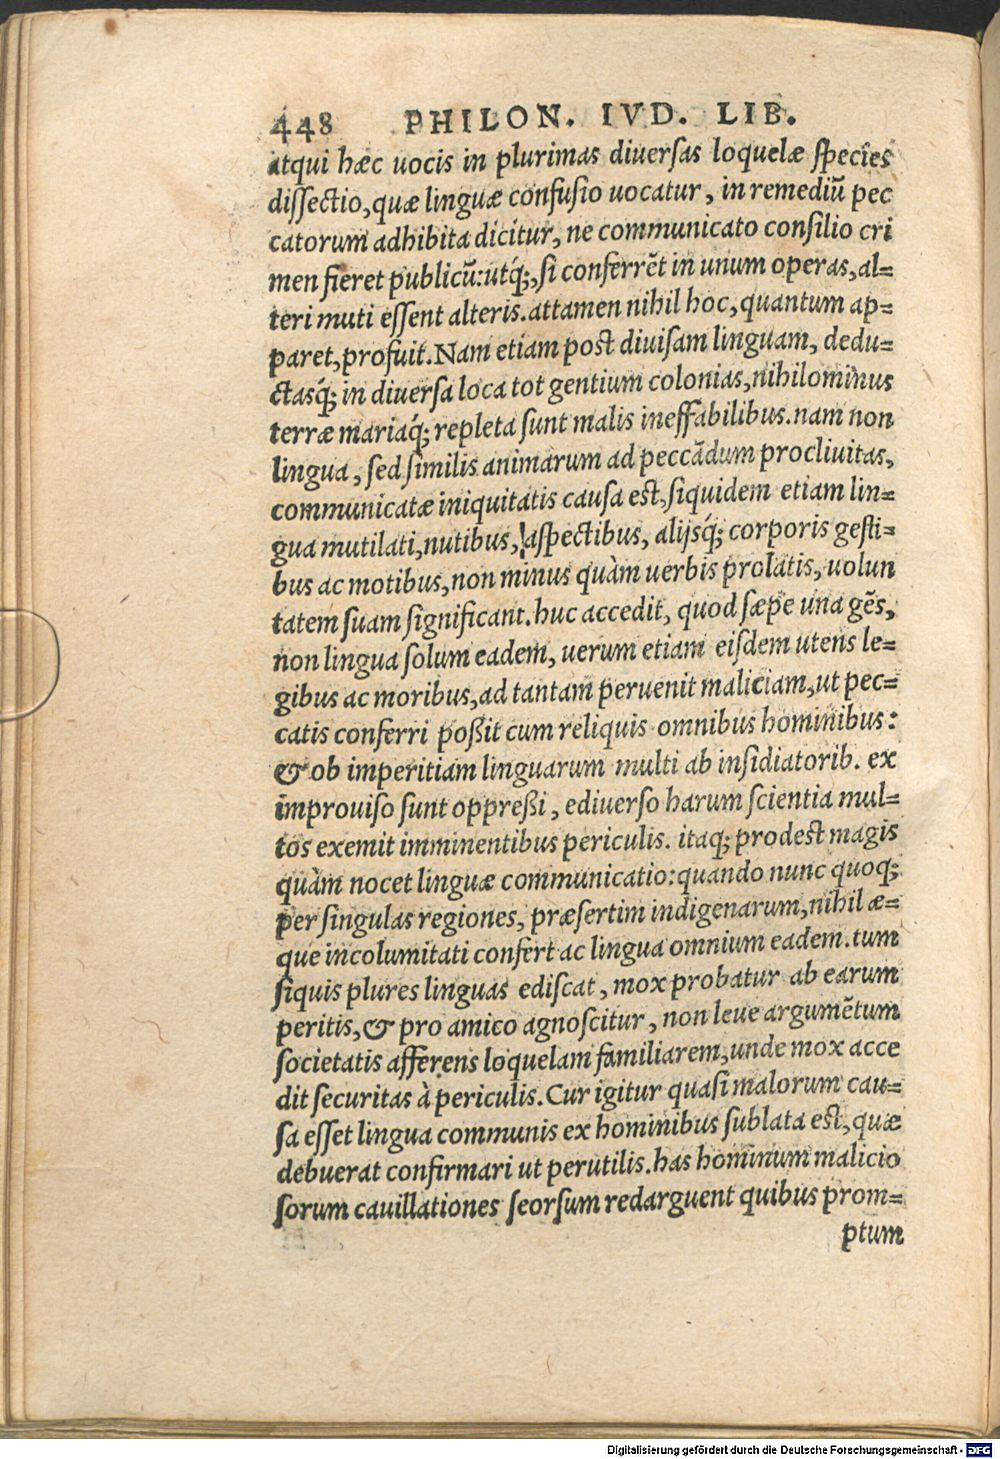 448 PHILON. IVD. LIB.
atqui hæc uocis in plurimas diuersas loquelæ species
dissectio, quæ linguæ confusio uocatur, in remediũ pec
catorum adhibita dicitur, ne communicato consilio cri
men fieret publicũ: utq́;, si conferrẽt in unum operas, al=
teri muti essent alteris. attamen nihil hoc, quantum ap=
paret, profuit. Nam etiam post diuisam linguam, dedu=
ctasq́; in diuersa loca tot gentium colonias, nihilominus
terræ mariaq́; repleta sunt malis ineffabilibus. nam non
lingua, sed similis animarum ad peccãdum procliuitas,
communicatæ iniquitatis causa est, siquidem etiam lin=
gua mutilati, nutibus, aspectibus, alijsq́; corporis gesti=
bus ac motibus, non minus quàm uerbis prolatis, uolun
tatem suam significant. huc accedit, quod sæpe una gẽs,
non lingua solum eadem, uerum etiam eisdem utens le=
gibus ac moribus, ad tantam peruenit maliciam, ut pec=
catis conferri poßit cum reliquis omnibus hominibus:
& ob imperitiam linguarum multi ab insidiatorib. ex
improuiso sunt oppreßi, ediuerso harum scientia mul=
tos exemit imminentibus periculis. itaq; prodest magis
quàm nocet linguæ communicatio: quando nunc quoq;
per singulas regiones, præsertim indigenarum, nihil æ=
que incolumitati confert ac lingua omnium eadem. tum
siquis plures linguas ediscat, mox probatur ab earum
peritis, & pro amico agnoscitur, non leue argumẽtum
societatis afferens loquelam familiarem, unde mox acce
dit securitas à periculis. Cur igitur quasi malorum cau=
sa esset lingua communis ex hominibus sublata est, quæ
debuerat confirmari ut perutilis. has hominum malicio
sorum cauillationes seorsum redarguent quibus prom=
ptum
Digitalisierung gefördert durch die Deutsche Forschungsgemeinschaft - DFG